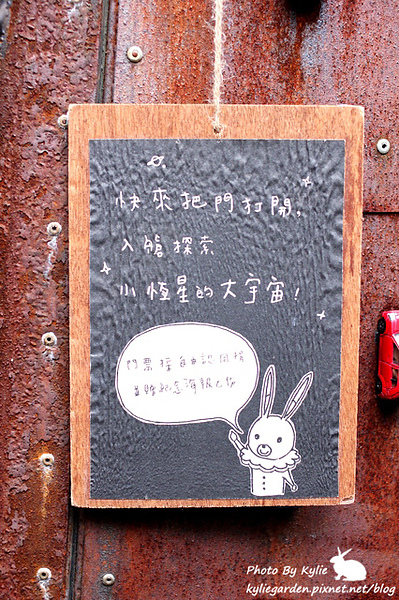 快來把門打開,
入艙探索
小恆星的大宇宙!
門票採自由認同捐
並贈紀念海報乙份
Photo By Kylie
kyliegarden.pixnet.net/blog